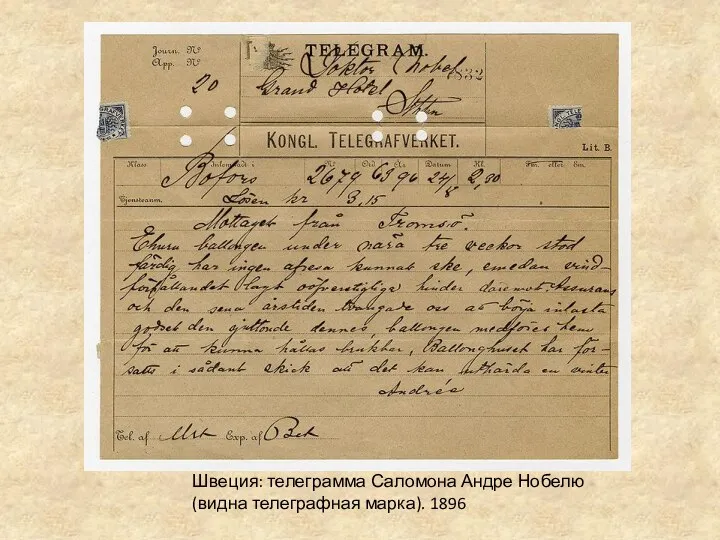 TELEGRAM.
Journ. Nº
App. Nº
20
Doktor Nobel
Grand Hotel
Sthm
KONGL. TELEGRAFVERKET.
Lit. B.
Klass Inlemnadt i Nº Ord Datum Kl. Fm. eller Em.
Bofors 2679 63 96 24/8 2,50
Tjensteanm. Lösen kr 3,15
Mottaget från Tromsö.
Ehuru ballongen under nära tre veckor stod
färdig har ingen afresa kunnat ske, emedan vind-
förhållandet lagt oöfverstigliga hinder däremot. Assurans
och den sena årstiden tvungade oss att börja intasta
godset den sjuttonde dennes, ballongen medföres hem
för att kunna hållas brukbar, Ballonghuset har för-
satts i sådant skick att det kan uthärda en vinter
Andrée
Tel. af Exp. af
Швеция: телеграмма Саломона Андре Нобелю
(видна телеграфная марка). 1896